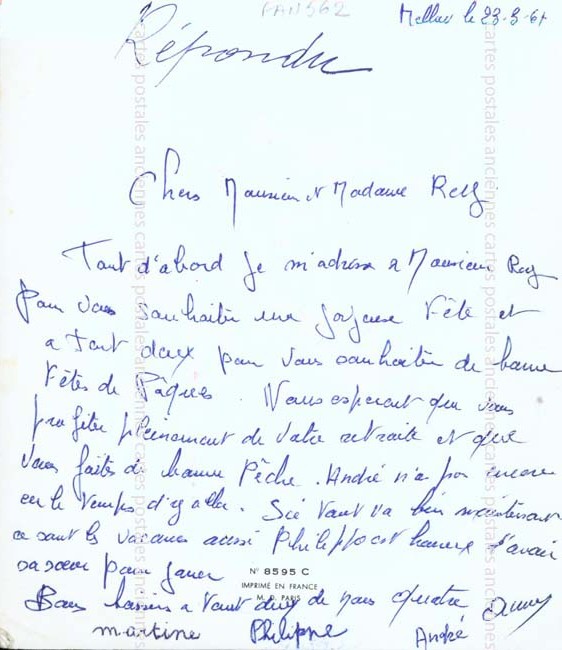 PAN562
le 23-3-61
Répondu
Chers Monsieur et Madame Rey
Tout d'abord je m'adresse a Monsieur Rey
pour vous souhaiter une joyeuse Fête et
a tout deux pour vous souhaiter de bonne
Fêtes de Pâques. Nous esperont que vous
profiter pleinement de votre retraite et que
vous faites de bonne Pêche. André n'a pas encore
eu le temps d'y aller. Ici tout va bien maintenant
ce sont les vacances aussi Philippe est heureux d'avoir
sa soeur pour jouer
N° 8595 C
IMPRIMÉ EN FRANCE
M. D. PARIS
Bons baisers a tout deux de nous quatre
martine Philippe André
cartes postales anciennes cartes postales anciennes cartes postales anciennes
cartes postales anciennes cartes postales anciennes cartes postales anciennes